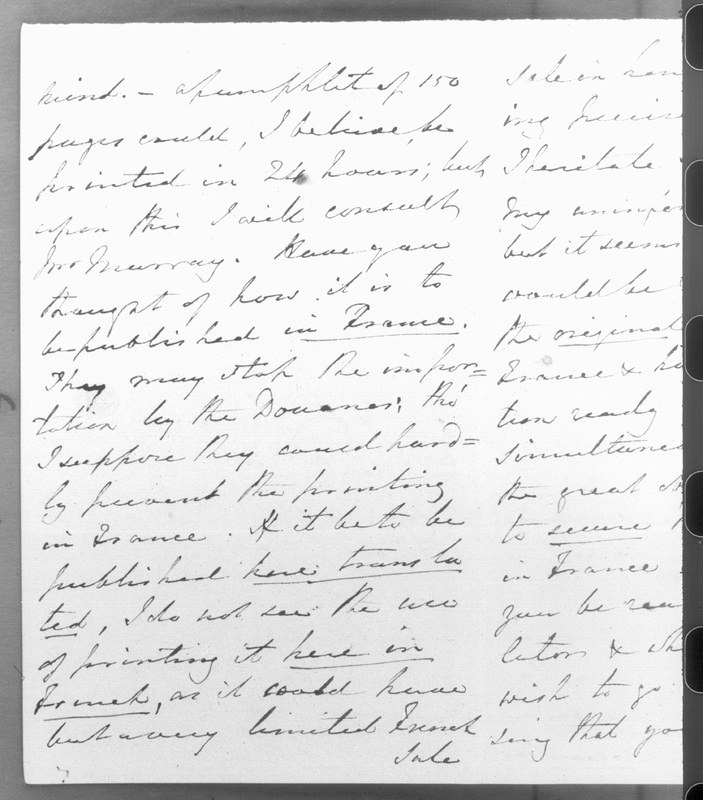 mind. – a pamphlet of 150
pages could, I believe, be
printed in 24 hours; but
upon this I will consult
Mr Murray. Have you
thought of how it is to
be published in France.
They may stop the impor=
tation by the Douanes; tho'
I suppose they could hard=
ly prevent the printing
in France. If it be to be
published here transla
ted, I do not see the use
of printing it here in
French, as it could have
but a very limited French
Sale
sale in
ing
I hesitate
my
but it seems
would be
the original
France &
tion ready
simultane
the great
to secure
in France
you be
lators &
wish to go
sing that yo